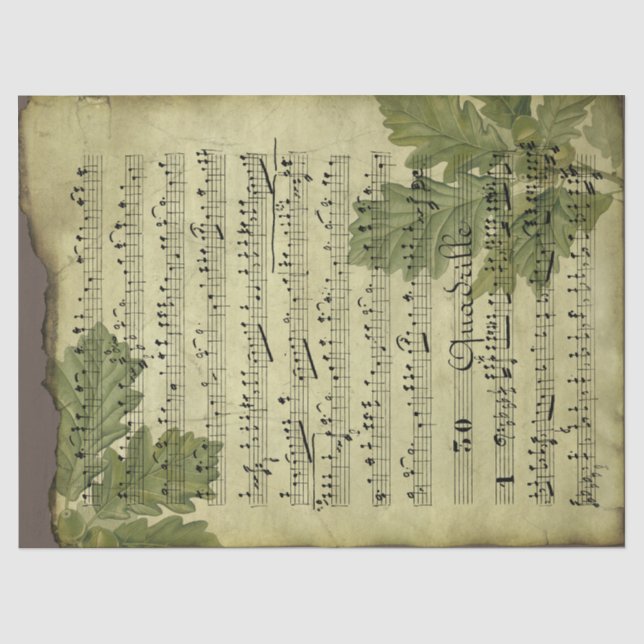 50 Quadrille
1